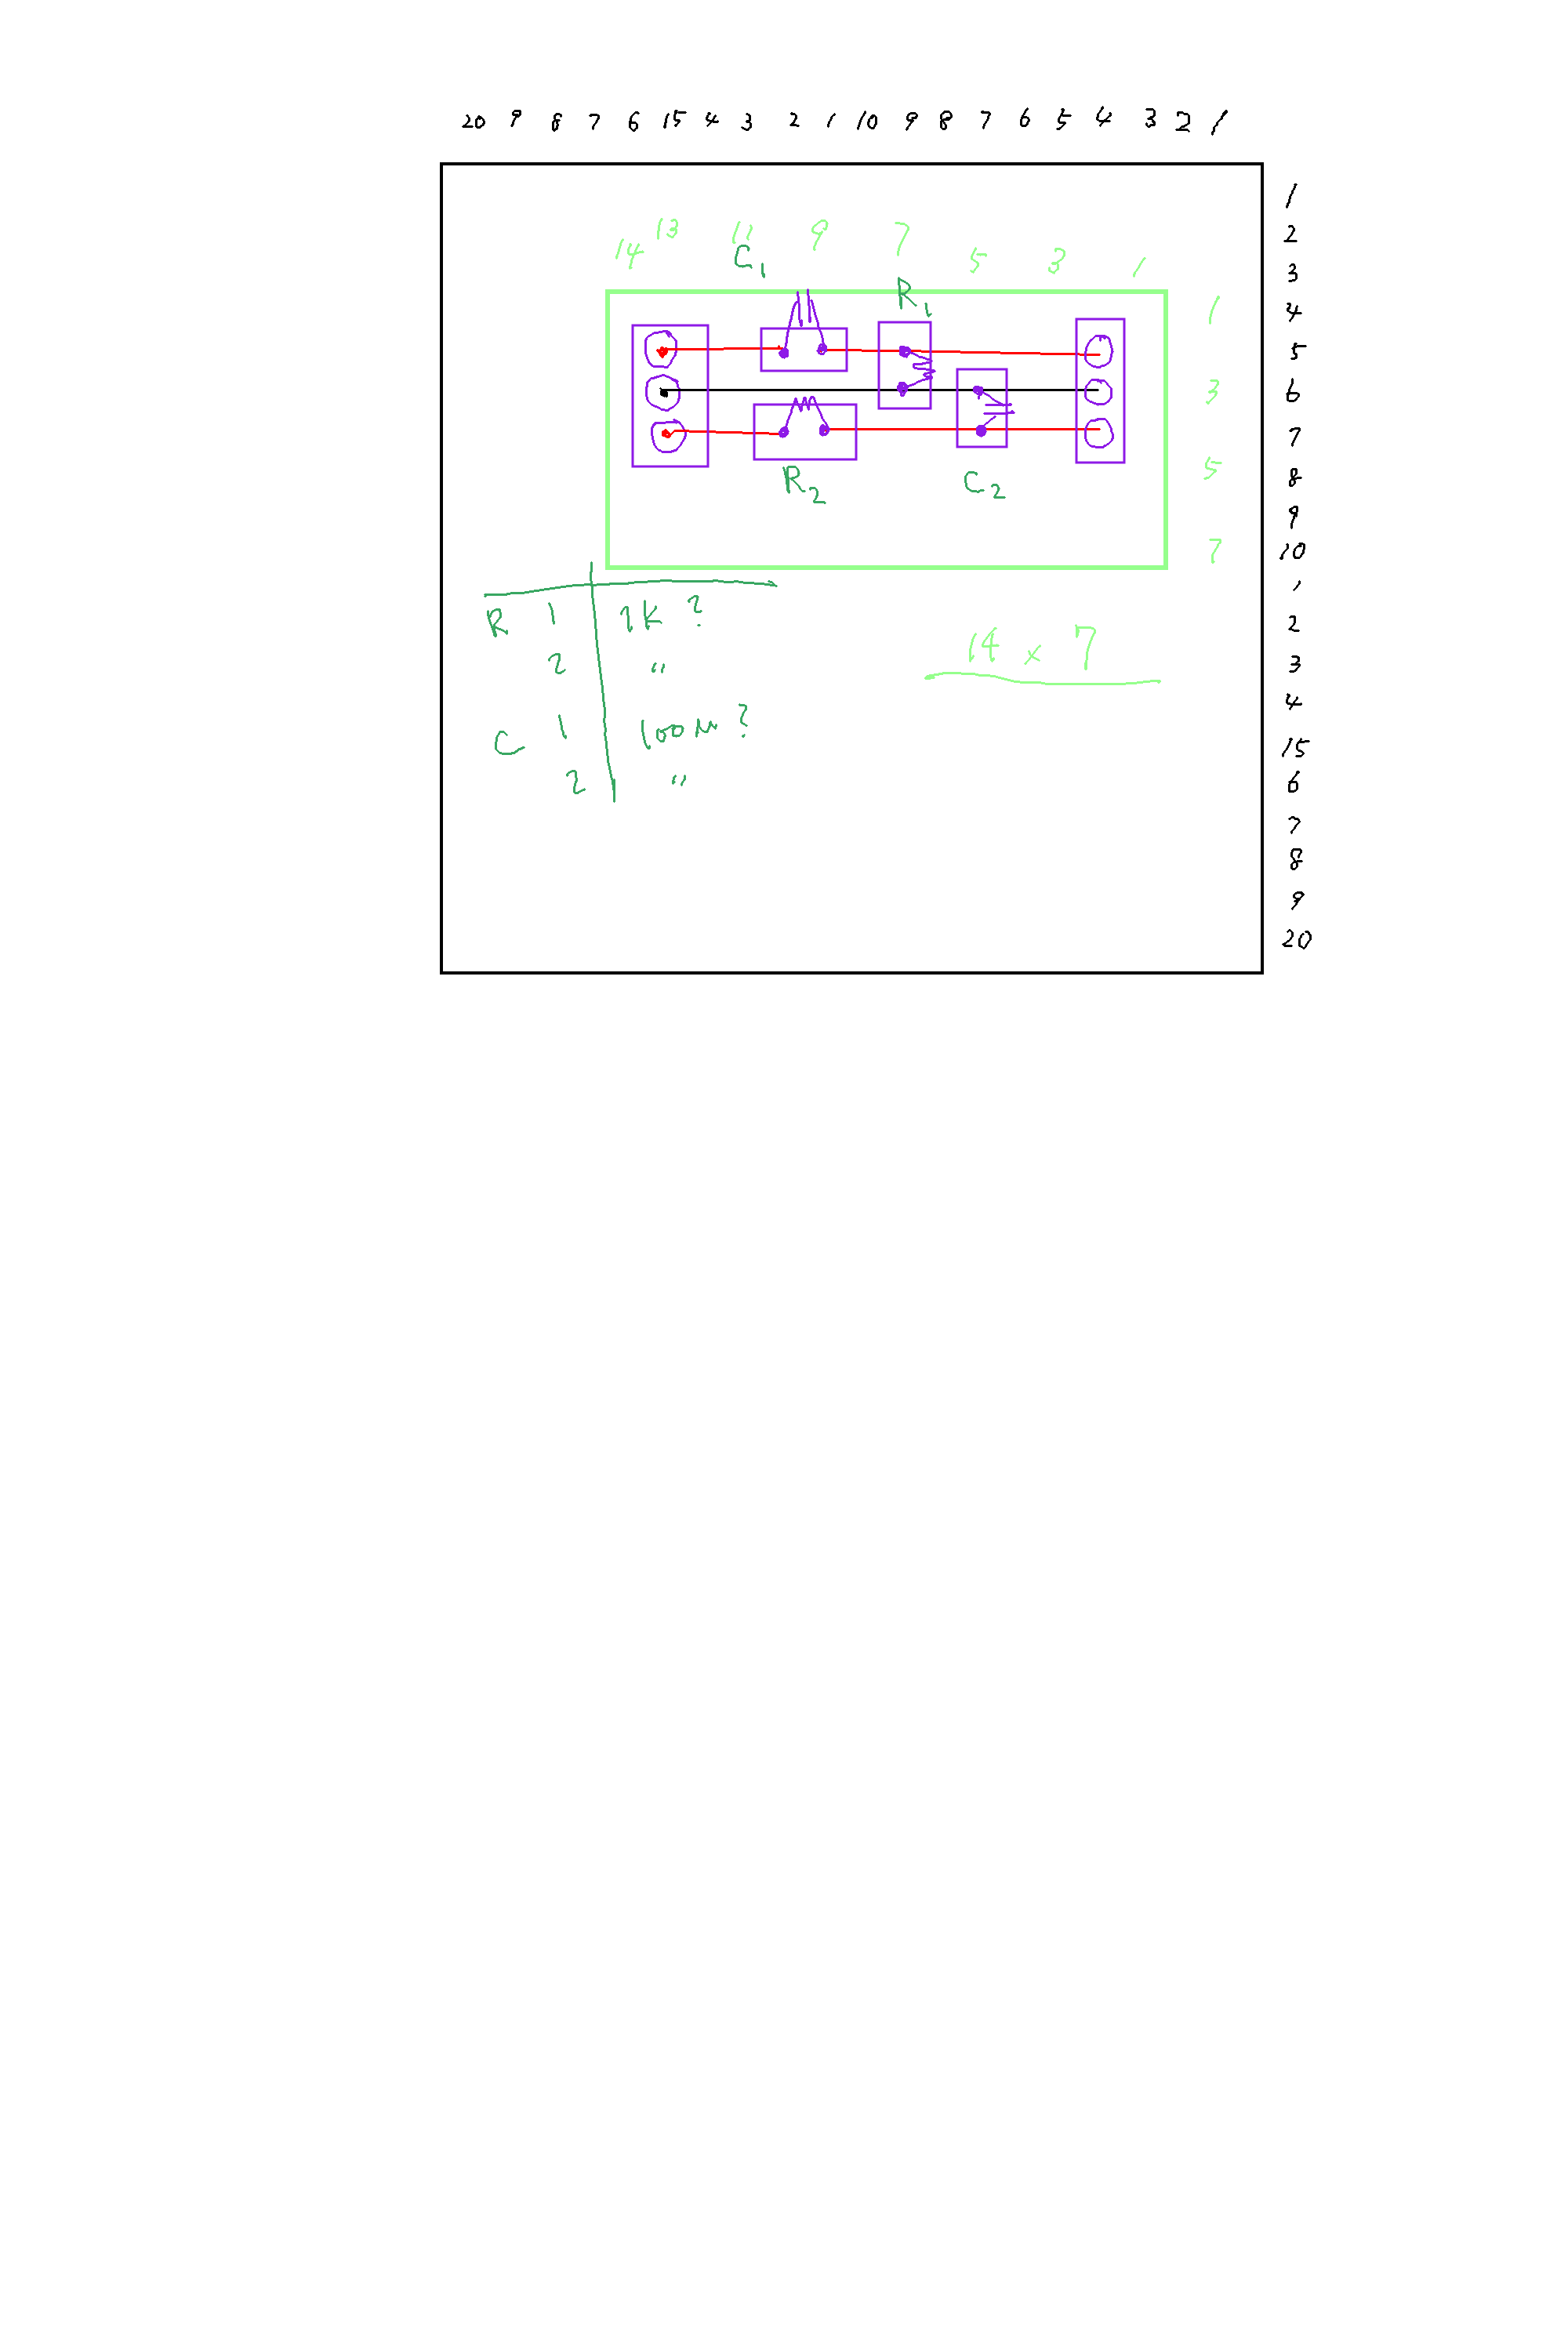 20 9 8 7 6 15 4 3 2 1 10 9 8 7 6 5 4 3 2 1
1
2
3
4
5
6
7
8
9
10
1
2
3
4
15
6
7
8
9
20
14 13 11 9 7 5 3 1
1
3
5
7
C1
R1
R2
C2
R 1 1K ?
2 "
C 1 100μ ?
2 "
14 x 7